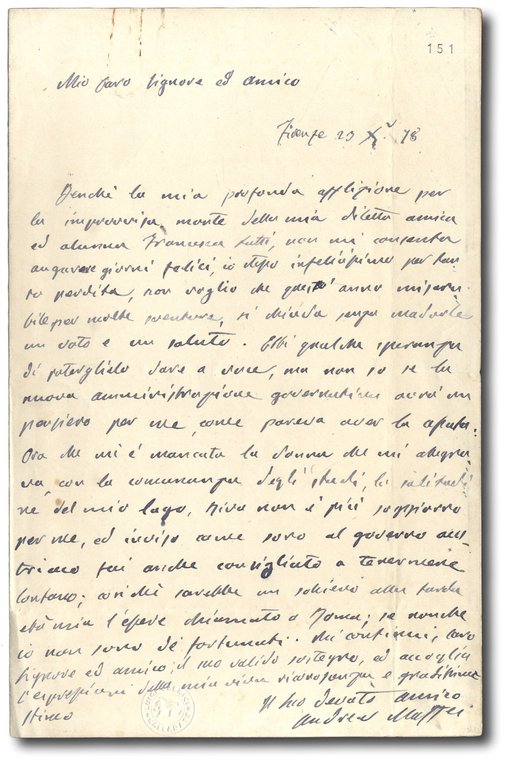 151
Mio caro Signore ed amico
Firenze 23 Xᵉ 78
Benchè la mia profonda afflizione per
la improvvisa morte della mia diletta amica
ed alunna Francesca Lutti, non mi consenta
augurare giorni felici, io stesso infelicissimo per tan
ta perdita, non voglio che quest'anno misera-
bile per molte sventure, si chiuda senza
un voto e un saluto. Ebbi qualche speranza
di poterglielo dare a voce, ma non so se la
nuova amministrazione governativa avrà un
pensiero per me, come pareva aver la
Ora che mi è mancata la donna che mi allegra
va con la comunanza degli studi, la solitudi
ne del mio lago, Riva non è più soggiorno
per me, ed inviso come sono al governo aus-
triaco fui anche consigliato a tenermene
lontano; cosichè sarebbe un sollievo alla tarda
età mia l'essere chiamato a Roma; se nonchè
io non sono de' fortunati. Mi continui, caro
Signore ed amico, il suo valido sostegno, ed accolga
l'espressione della mia viva riconoscenza e
stima
Il suo devoto amico
Andrea Maffei